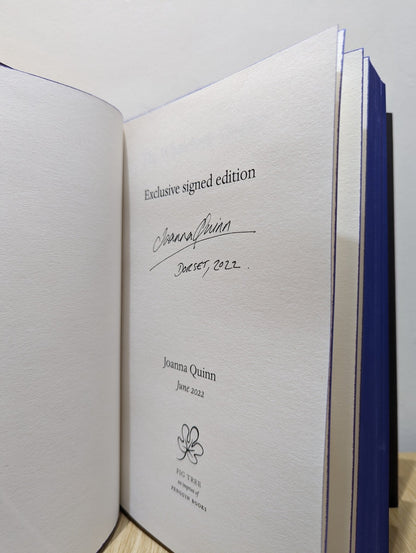 Exclusive signed edition
Joanna Quinn
DORSET, 2022.
Joanna Quinn
June 2022
FIG TREE
an imprint of
PENGUIN BOOKS